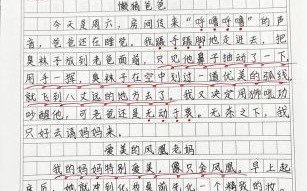 懒猪爸爸
今天是周六，房间传来“呼噜呼噜”的声
音，爸爸还在睡觉，我蹑手蹑脚地走进去，把
臭袜子放到老爸面前，只见他鼻子抽动了一下，
用手一挥，臭袜子在空中划过一道优美的弧线
就飞到八丈远的地方去了。我又决定用狮吼功
吵醒他，可老爸还是无动于衷。无奈之下，我
只好去请妈妈来。
爱美的凤凰老妈
我的妈妈特别爱美，像只金凤凰。早上起
床后，她就冲到化妆